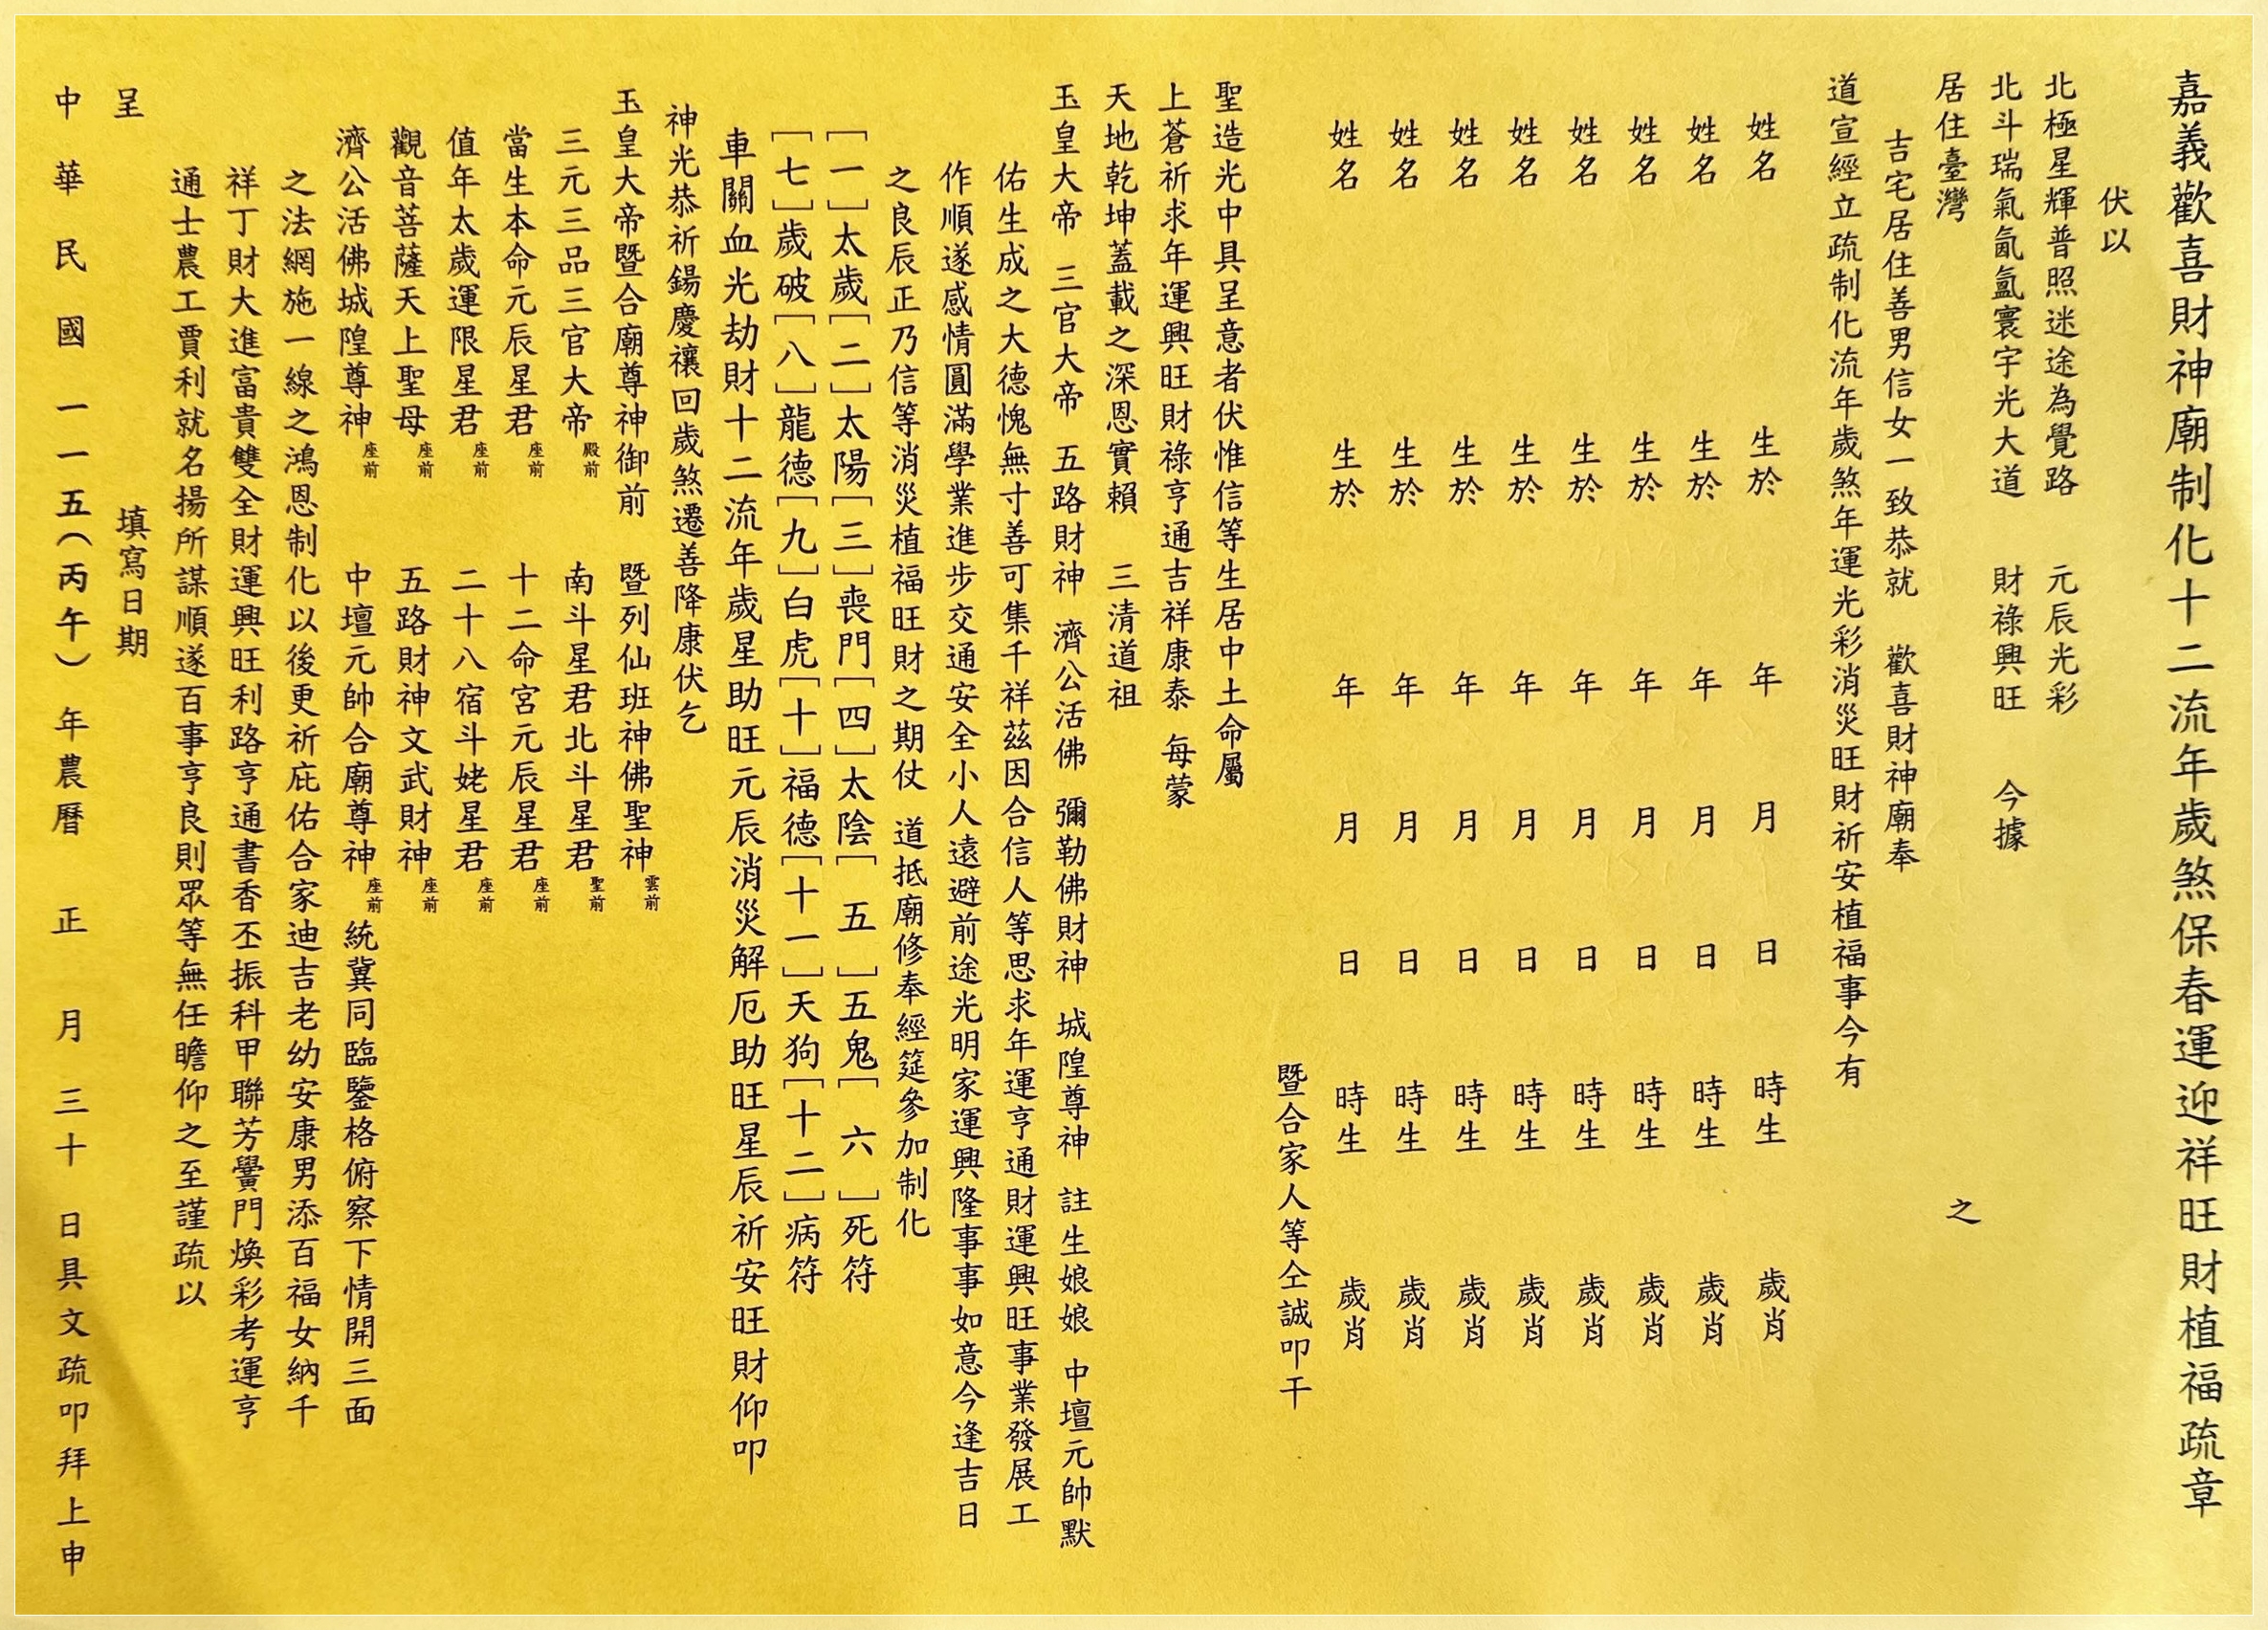 嘉義歡喜財神廟制化十二流年歲煞保春運迎祥旺財植福疏章
伏以
北極星輝普照迷途為覺路　元辰光彩
北斗瑞氣氤氳寰宇光大道　財祿興旺　今據
居住臺灣　之
吉宅居住善男信女一致恭就　歡喜財神廟奉
道宣經立疏制化流年歲煞年運光彩消災旺財祈安植福事今有
姓名　生於　年　月　日　時生　歲肖
姓名　生於　年　月　日　時生　歲肖
姓名　生於　年　月　日　時生　歲肖
姓名　生於　年　月　日　時生　歲肖
姓名　生於　年　月　日　時生　歲肖
姓名　生於　年　月　日　時生　歲肖
姓名　生於　年　月　日　時生　歲肖
姓名　生於　年　月　日　時生　歲肖
暨合家人等仝誠叩干
聖造光中具呈意者伏惟信等生居中土命屬
上蒼祈求年運興旺財祿亨通吉祥康泰　每蒙
天地乾坤蓋載之深恩實賴　三清道祖
玉皇大帝　三官大帝　五路財神　濟公活佛　彌勒佛財神　城隍尊神　註生娘娘　中壇元帥默
佑生成之大德愧無寸善可集千祥茲因合信人等思求年運亨通財運興旺事業發展工
作順遂感情圓滿學業進步交通安全小人遠避前途光明家運興隆事事如意今逢吉日
之良辰正乃信等消災植福旺財之期仗　道抵廟修奉經筵參加制化
［一］太歲［二］太陽［三］喪門［四］太陰［五］五鬼［六］死符
［七］歲破［八］龍德［九］白虎［十］福德［十一］天狗［十二］病符
車關血光劫財十二流年歲星助旺元辰消災解厄助旺星辰祈安旺財仰叩
神光恭祈錫慶禳回歲煞遷善降康伏乞
玉皇大帝暨合廟尊神御前　暨列仙班神佛聖神雲前
三元三品三官大帝殿前　南斗星君北斗星君聖前
當生本命元辰星君座前　十二命宮元辰星君座前
值年太歲運限星君座前　二十八宿斗姥星君座前
觀音菩薩天上聖母座前　五路財神文武財神座前
濟公活佛城隍尊神座前　中壇元帥合廟尊神座前　統冀同臨鑒格俯察下情開三面
之法網施一線之鴻恩制化以後更祈庇佑合家迪吉老幼安康男添百福女納千
祥丁財大進富貴雙全財運興旺利路亨通書香丕振科甲聯芳黌門煥彩考運亨
通士農工賈利就名揚所謀順遂百事亨良則眾等無任瞻仰之至謹疏以
呈　填寫日期
中華民國一一五（丙午）年農曆　正　月　三十　日具文疏叩拜上申